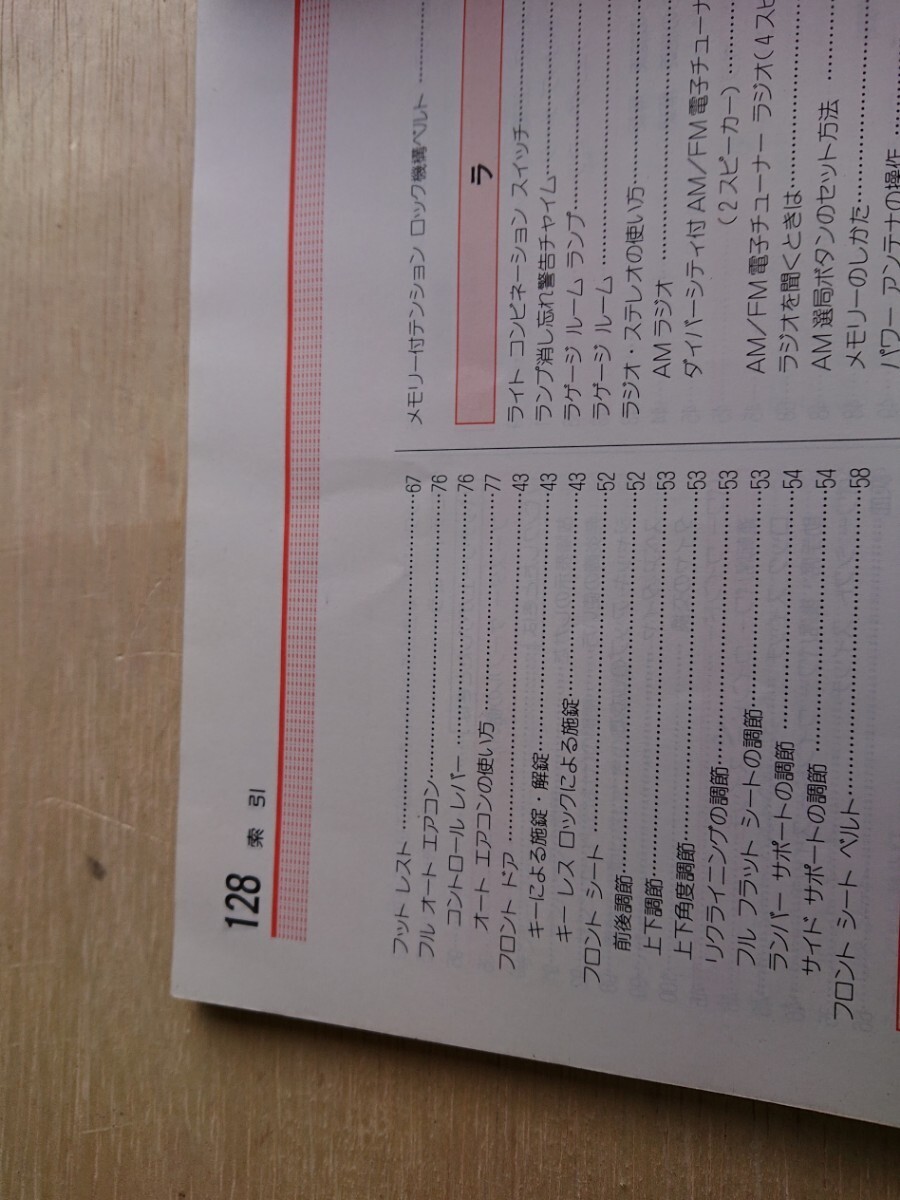 128 索 引
フット レスト……67
フル オート エアコン……76
コントロール レバー……76
オート エアコンの使い方……77
フロント ドア……43
キーによる施錠・解錠……43
キー レス ロックによる施錠……43
フロント シート……52
前後調節……52
上下調節……53
上下角度調節……53
リクライニングの調節……53
フル フラット シートの調節……53
ランバー サポートの調節……54
サイド サポートの調節……54
フロント シート ベルト……58
メモリー付テンション ロック機構ベルト……
ラ
ライト コンビネーション スイッチ……
ランプ消し忘れ警告チャイム……
ラゲージ ルーム ランプ……
ラゲージ ルーム……
ラジオ・ステレオの使い方……
AMラジオ……
ダイバーシティ付AM/FM電子チューナ
(2スピーカー)……
AM/FM電子チューナー ラジオ(4スピ
ラジオを聞くときは……
AM選局ボタンのセット方法……
メモリーのしかた……
パワー アンテナの操作……